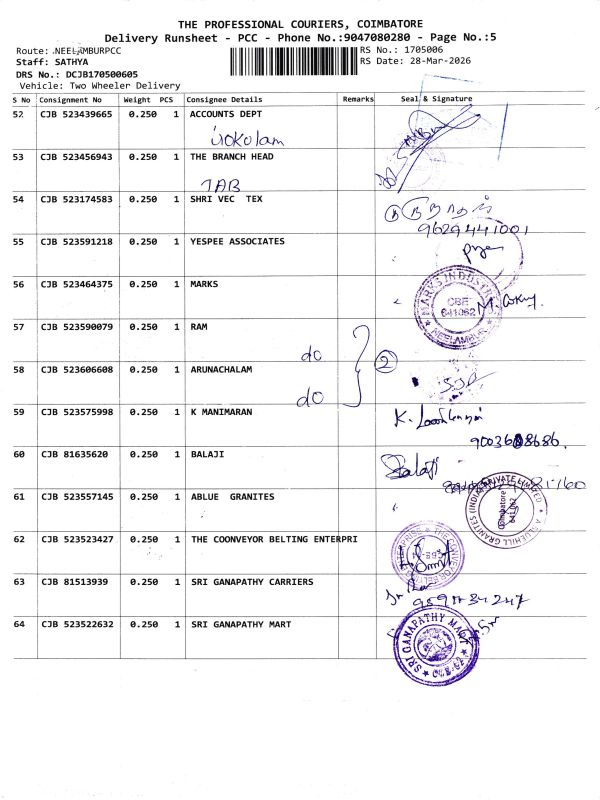 THE PROFESSIONAL COURIERS, COIMBATORE
Delivery Runsheet - PCC - Phone No.:9047080280 - Page No.:5
Route: NEELAMBURPCC RS No.: 1705006
Staff: SATHYA RS Date: 28-Mar-2026
DRS No.: DCJB170500605
Vehicle: Two Wheeler Delivery
S No Consignment No Weight PCS Consignee Details Remarks Seal & Signature
52 CJB 523439665 0.250 1 ACCOUNTS DEPT
53 CJB 523456943 0.250 1 THE BRANCH HEAD
TAB
54 CJB 523174583 0.250 1 SHRI VEC TEX
9629441001
55 CJB 523591218 0.250 1 YESPEE ASSOCIATES
56 CJB 523464375 0.250 1 MARKS
MARKS INDUSTRIES CBE 641062 NEELAMBUR
57 CJB 523590079 0.250 1 RAM
do
2
58 CJB 523606608 0.250 1 ARUNACHALAM
do
59 CJB 523575998 0.250 1 K MANIMARAN
60 CJB 81635620 0.250 1 BALAJI
Balaji
61 CJB 523557145 0.250 1 ABLUE GRANITES
BLUEHILL GRANITES (INDIA) PRIVATE LIMITED Coimbatore 641062
62 CJB 523523427 0.250 1 THE COONVEYOR BELTING ENTERPRI
63 CJB 81513939 0.250 1 SRI GANAPATHY CARRIERS
64 CJB 523522632 0.250 1 SRI GANAPATHY MART
SRI GANAPATHY MART